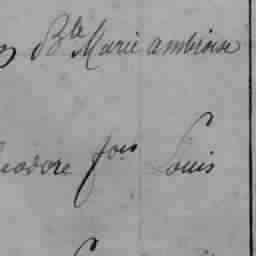 Bte Marie ambroise
eodore fois Louis